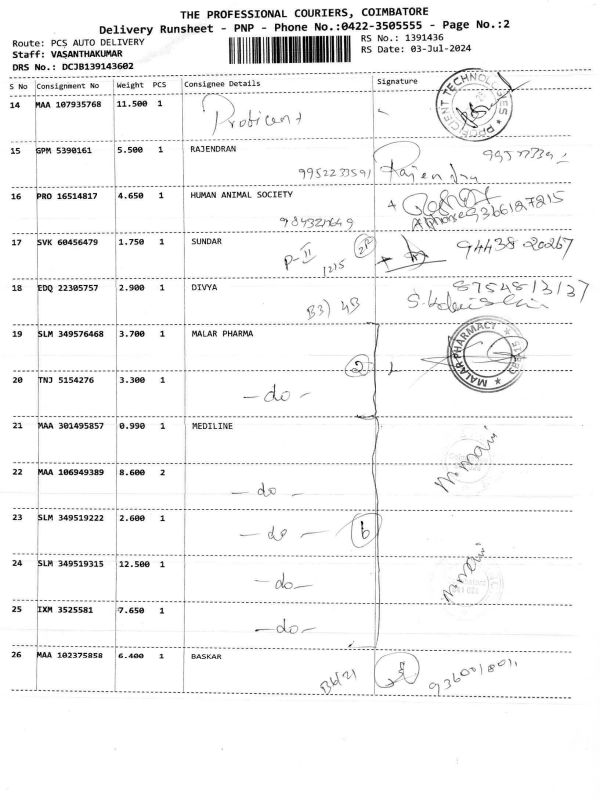 THE PROFESSIONAL COURIERS, COIMBATORE
Delivery Runsheet - PNP - Phone No.:0422-3505555 - Page No.:2
Route: PCS AUTO DELIVERY
RS No.: 1391436
Staff: VASANTHAKUMAR
RS Date: 03-Jul-2024
DRS No.: DCJB139143602
S No Consignment No Weight PCS Consignee Details Signature
14 MAA 107935768 11.500 1
PROFICIENT TECHNOLOGIES
15 GPM 5390161 5.500 1 RAJENDRAN
9952233591
16 PRO 16514817 4.650 1 HUMAN ANIMAL SOCIETY
Alphonse 9366127215
17 SVK 60456479 1.750 1 SUNDAR
P-II 1215 2P 94438 20267
18 EDQ 22305757 2.900 1 DIVYA
8754813137
B3) 4B
19 SLM 349576468 3.700 1 MALAR PHARMA
2
MALAR PHARMACY
20 TNJ 5154276 3.300 1
- do -
21 MAA 301495857 0.990 1 MEDILINE
M. Mani
22 MAA 106949389 8.600 2
- do -
23 SLM 349519222 2.600 1
- do - 6
24 SLM 349519315 12.500 1
- do - M. Mani
25 IXM 3525581 7.650 1
- do -
26 MAA 102375858 6.400 1 BASKAR